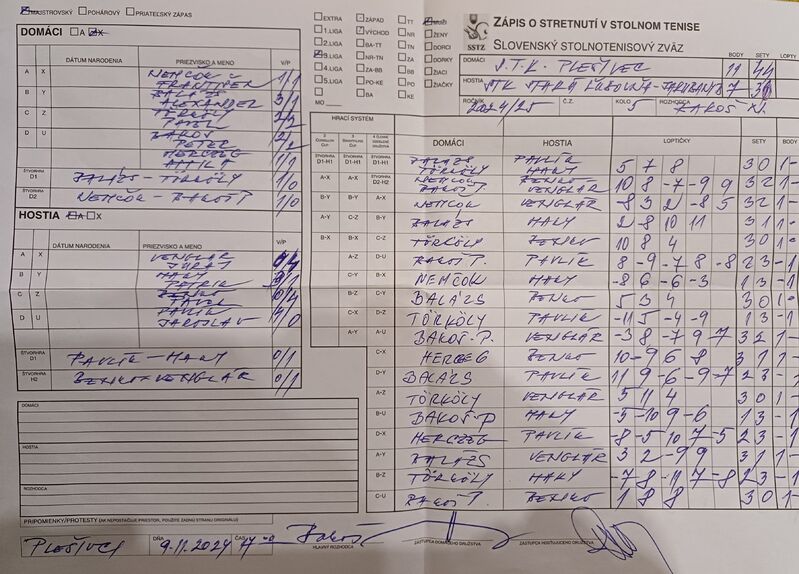 MAJSTROVSKÝ POHÁROVÝ PRIATEĽSKÝ ZÁPAS
DOMÁCI A X
DÁTUM NARODENIA PRIEZVISKO A MENO V/P
A X NEMČOK FRANTIŠEK 1/1
B Y BALÁZS ALEXANDER 3/1
C Z TÖRKÖLY PAVEL 2/2
D U BAKOŠ PETER 2/2
HERCZEG 1/1
ŠTVORHRA D1 BALÁZS - TÖRKÖLY 1/0
ŠTVORHRA D2 NEMČOK - BAKOŠ P 1/0
HOSTIA A X
DÁTUM NARODENIA PRIEZVISKO A MENO V/P
A X VENGLÁR JURAJ 0/4
B Y HAKY PATRIK 3/1
C Z BENKO PAVOL 0/4
D U PAVLÍK JAROSLAV 4/0
ŠTVORHRA D1 PAVLÍK - HAKY 0/1
ŠTVORHRA H2 BENKO - VENGLÁR 0/1
DOMÁCI
HOSTIA
ROZHODCA
PRIPOMIENKY/PROTESTY (AK NEPOSTAČUJE PRIESTOR, POUŽITE ZADNÚ STRANU ORIGINÁLU)
PLEŠIVEC DŇA 9.11.2024 ČAS 17 00
HLAVNÝ ROZHODCA ZÁSTUPCA DOMÁCEHO DRUŽSTVA ZÁSTUPCA HOSŤUJÚCEHO DRUŽSTVA
EXTRA ZÁPAD TT MUŽI
1.LIGA VÝCHOD NR ŽENY
2.LIGA BA-TT TN DORCI
3.LIGA NR-TN ZA DORKY
4.LIGA ZA-BB BB ŽIACI
5.LIGA KE-PO PO ŽIAČKY
BA KE
MO
SSTZ
ZÁPIS O STRETNUTÍ V STOLNOM TENISE
SLOVENSKÝ STOLNOTENISOVÝ ZVÄZ
DOMÁCI S.T.K. - PLEŠIVEC BODY 11 SETY 44 LOPTY
HOSTIA STK STARÁ ĽUBOVŇA - JARABINA 7
ROČNÍK 2024/25 Č.Z. KOLO 5 ROZHODCA BAKOŠ
HRACÍ SYSTÉM
DOMÁCI HOSTIA LOPTIČKY SETY BODY
ŠTVORHRA D1-H1 ŠTVORHRA D1-H1 ŠTVORHRA D1-H1 BALÁZS TÖRKÖLY PAVLÍK HAKY 5 7 8 3 0 1
A-X A-X ŠTVORHRA D2-H2 NEMČOK BAKOŠ P BENKO VENGLÁR 10 8 -7 -9 9 3 2 1
B-Y B-Y A-X NEMČOK VENGLÁR -8 3 2 -8 5 3 2 1
A-Y C-Z B-Y BALÁZS HAKY 2 -8 10 11 3 1 1
B-X B-X C-Z TÖRKÖLY BENKO 10 8 4 3 0 1
A-Z D-U BAKOŠ P. PAVLÍK 8 -9 -7 8 -8 2 3 -1
C-Y B-X NEMČOK HAKY -8 6 -6 -3 1 3 -1
B-Z C-Y BALÁZS BENKO 5 3 4 3 0 1
C-X D-Z TÖRKÖLY PAVLÍK -11 5 -4 -9 1 3 -1
A-Y A-U BAKOŠ - P. VENGLÁR -3 8 -7 9 7 3 2 1
C-X HERCZEG BENKO 10 -9 6 8 3 1 1
D-Y BALÁZS PAVLÍK 11 9 -6 -9 -7 2 3 -1
A-Z TÖRKÖLY VENGLÁR 5 11 4 3 0 1
B-U BAKOŠ - P HAKY -5 -10 9 -6 1 3 -1
D-X HERCZEG PAVLÍK -8 -5 10 7 -5 2 3 -1
A-Y BALÁZS VENGLÁR 3 2 -9 9 3 1 1
B-Z TÖRKÖLY HAKY -7 8 -11 7 -8 2 3 -1
C-U BAKOŠ P BENKO 1 8 8 3 0 1